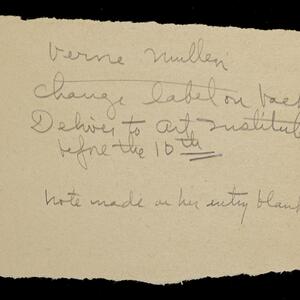 Verne Mullen
change label on back
Deliver to art Institut
before the 10th
note made on her entry blank